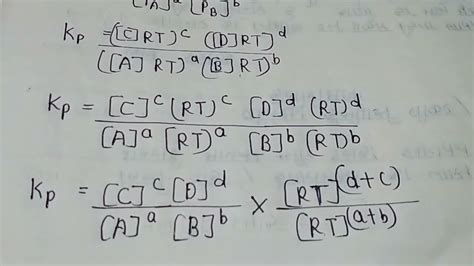 [PA]^a [PB]^b
Kp = ([C] RT)^c ([D] RT)^d
([A] RT)^a ([B] RT)^b
Kp = [C]^c (RT)^c [D]^d (RT)^d
[A]^a [RT)^a [B]^b (RT)^b
Kp = [C]^c [D]^d × [RT]^(d+c)
[A]^a [B]^b [RT]^(a+b)